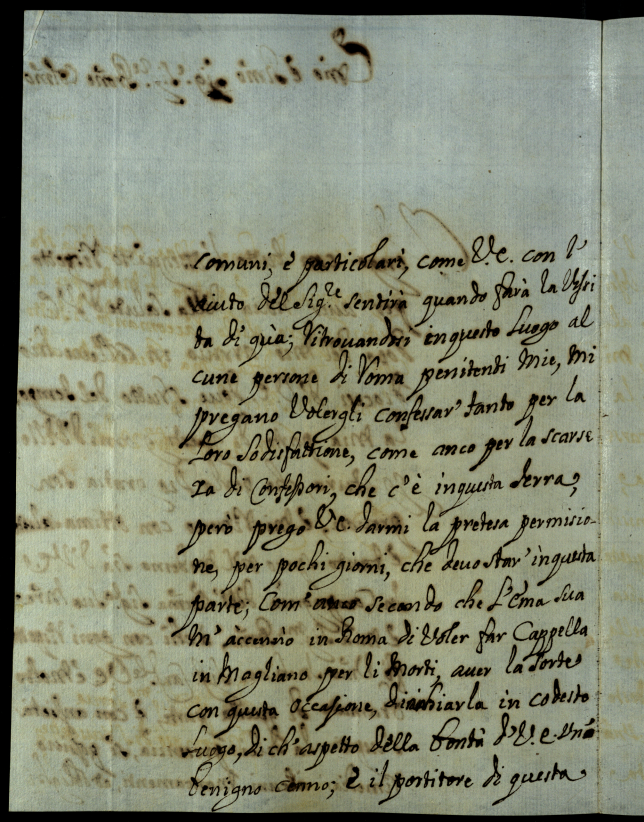 comuni, è particolari, come V.E. con l'
aiuto del Sig.re sentirà quando farà la Visi
ta di quà; Ritrovandosi in questo Luogo al
cune persone di Roma penitenti Mie, Mi
pregano Volergli Confessar' tanto per la
Loro Sodisfattione, come anco per la scarse
za di Confessori, che c'è in questa Terra,
però prego V.E. darmi la pretesa permisio-
ne, per pochi giorni, che devo star' in questa
parte; Com' anco secondo che L'Ema Sua
M' accennò in Roma di Voler far Cappella
in Magliano per li Morti, aver la Sorte
con questa Occasione, di inchinarla in codesto
Luogo, di ch' aspetto della bontà d'V.E. uno
benigno cenno; È il portitore di questa